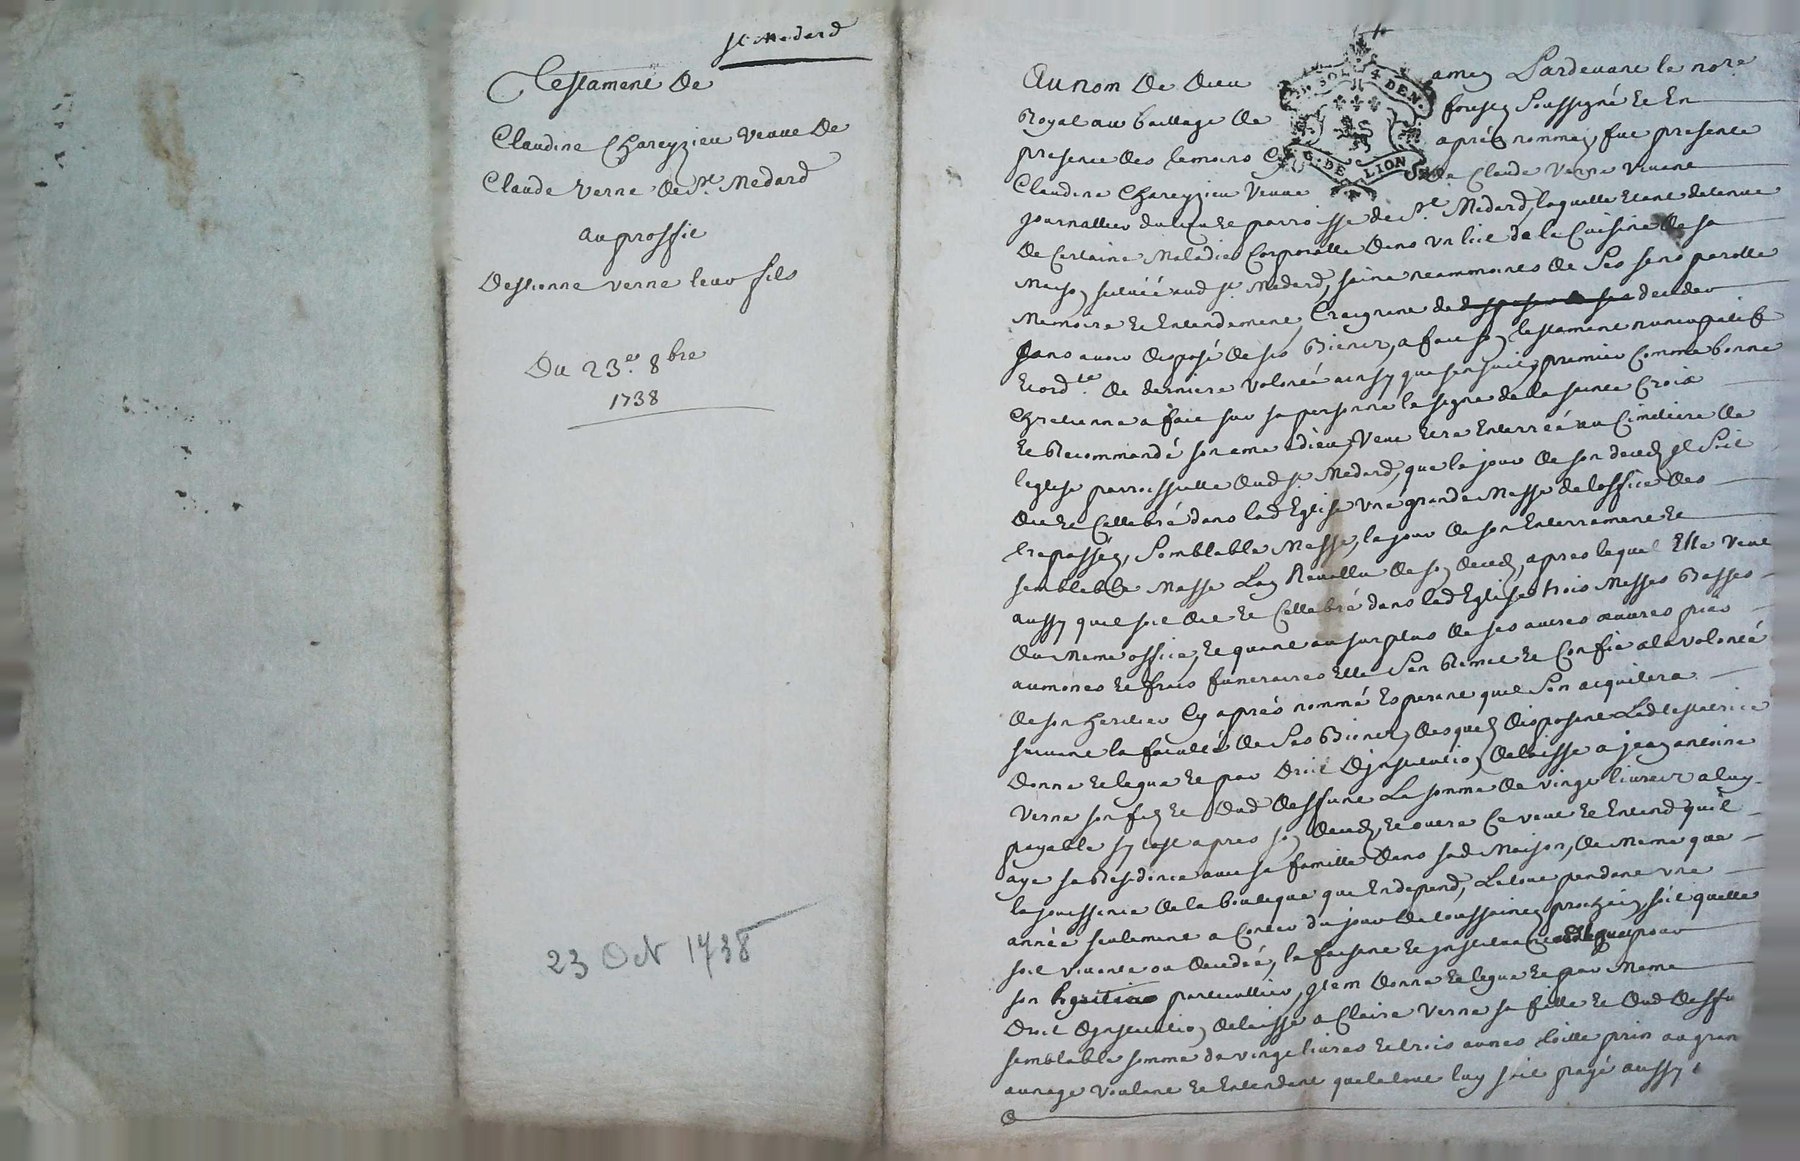 St Medard
Testament De
Claudine Chareyzieu veuve De
Claude Verne De St. Medard
au proffit
Destienne verne leur fils
Du 23e. 8bre
1738
23 Oct 1738
Au nom De Dieu amen Pardevant le nore.
Royal au bailliage De forusez soussigné Et En
presence des temoins Cy aprés nommez, fut presente
Claudine Chareyzieu veuve De Claude Verne vivant
journallier du lieu Et parroisse de St. Medard, laquelle Etant detenue
De Certaine Maladie Corporelle Dans un lict de la Cuisine de sa
Maison scituéé aud St. Medard, saine neammoins de Ses sens parolle
Memoire Et Entendement, Craignant de deceder
sans avoir disposé de ses Biens, a fait son testament nuncupatif
Et ordce. De derniere volonté ainsy que sensuit, premier Comme bonne
Chretienne a fait sur sa personne le signe de la sainte Croix
Et Recommandé son ame a dieu, Veut Etre Enterréé au Cimetiere de
leglise parroissielle dud St. Medard, que le jour de son deced il soit
dit Et Cellebré dans lad Eglise une grande Messe de loffice des
trepassez, Semblable Messe, le jour de son Enterrement Et
semblable Messe Lan Revollu de son deced, apres lequel Elle veut
aussy quil soit dit Et Cellebré dans lad Eglise trois Messes Basses
du Meme office, Et quant au surplus de ses autres œuvres pies
aumones Et frais funeraires Elle Sen Remet Et Confie a la volonté
de son heritier Cy aprés nommé Esperant quil Sen acquitera
suivant la faculté de Ses Biens, desquels disposant Lad testatrice
donne Et legue Et par Droit Dinstitution delaisse a jean antoine
Verne son fils Et dud deffunt La somme de vingt livres a luy
payable sy tost apres son deced, Et outre Ce veut Et Entend quil
aye sa Residence avec sa famille dans sad Maison, de Meme que
la jouissance de la boutique qui En depend, Le tout pendant une
année seulement a Conter du jour de toussaints prochain, soit quelle
soit vivante ou decedéé, le faisant Et instituant pour
son heritier particullier, Item donne Et legue Et par Meme
Droit Dinstitution delaisse a Claire Verne sa fille Et dud deffu
semblable somme de vingt livres Et trois aunes toille prin au gran
aunage voulant Et Entendant que le tout luy soit payé aussy